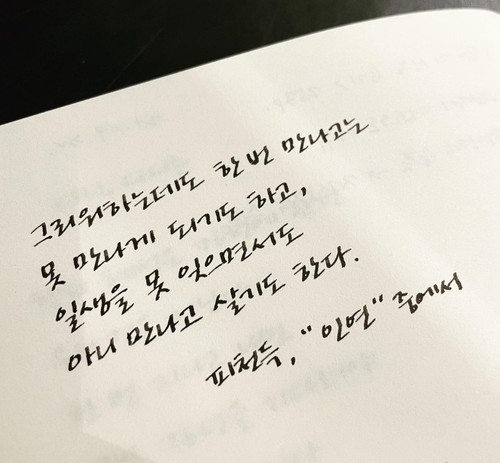 그리워하는데도 한 번 만나고는
못 만나게 되기도 하고,
일생을 못 잊으면서도
아니 만나고 살기도 한다.
피천득, "인연" 중에서